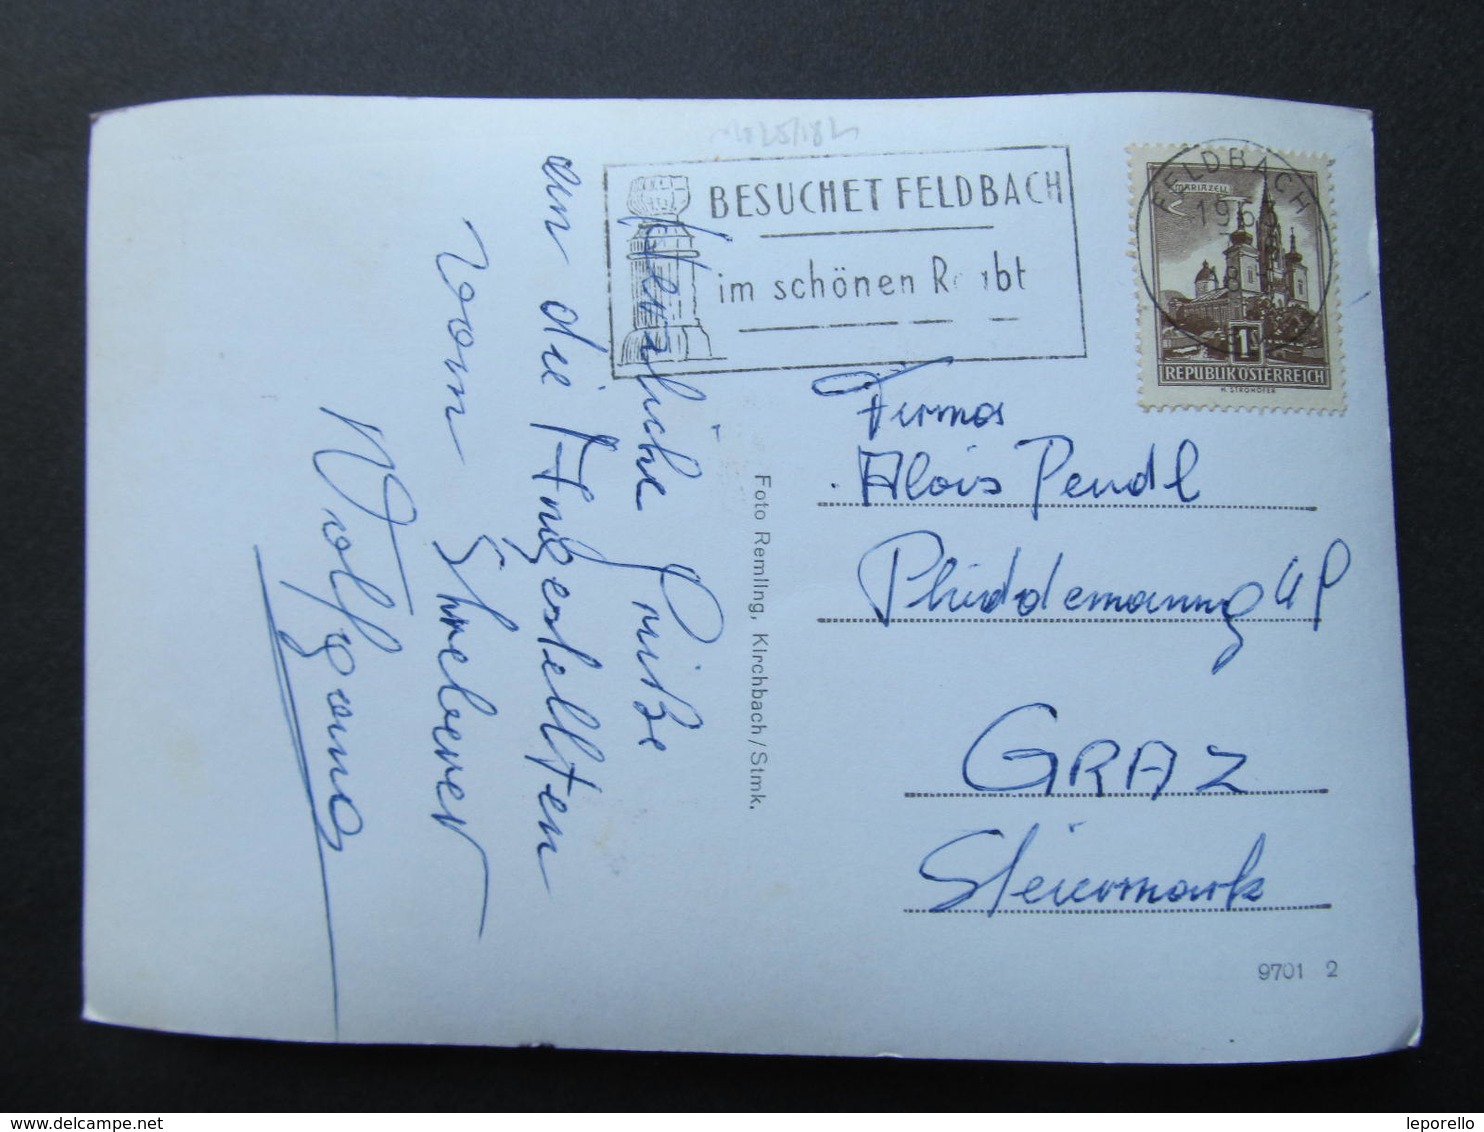 BESUCHET FELDBACH
im schönen R bt
FELDBACH
MARIAZELL
1S
REPUBLIK ÖSTERREICH
H. STROHOFER
Herzliche Grüße
an die Angestellten
vom
Wolfgang
Foto Remling, Kirchbach/Stmk.
Firma
Alois Pendl
GRAZ
Steiermark
9701 2
leporello